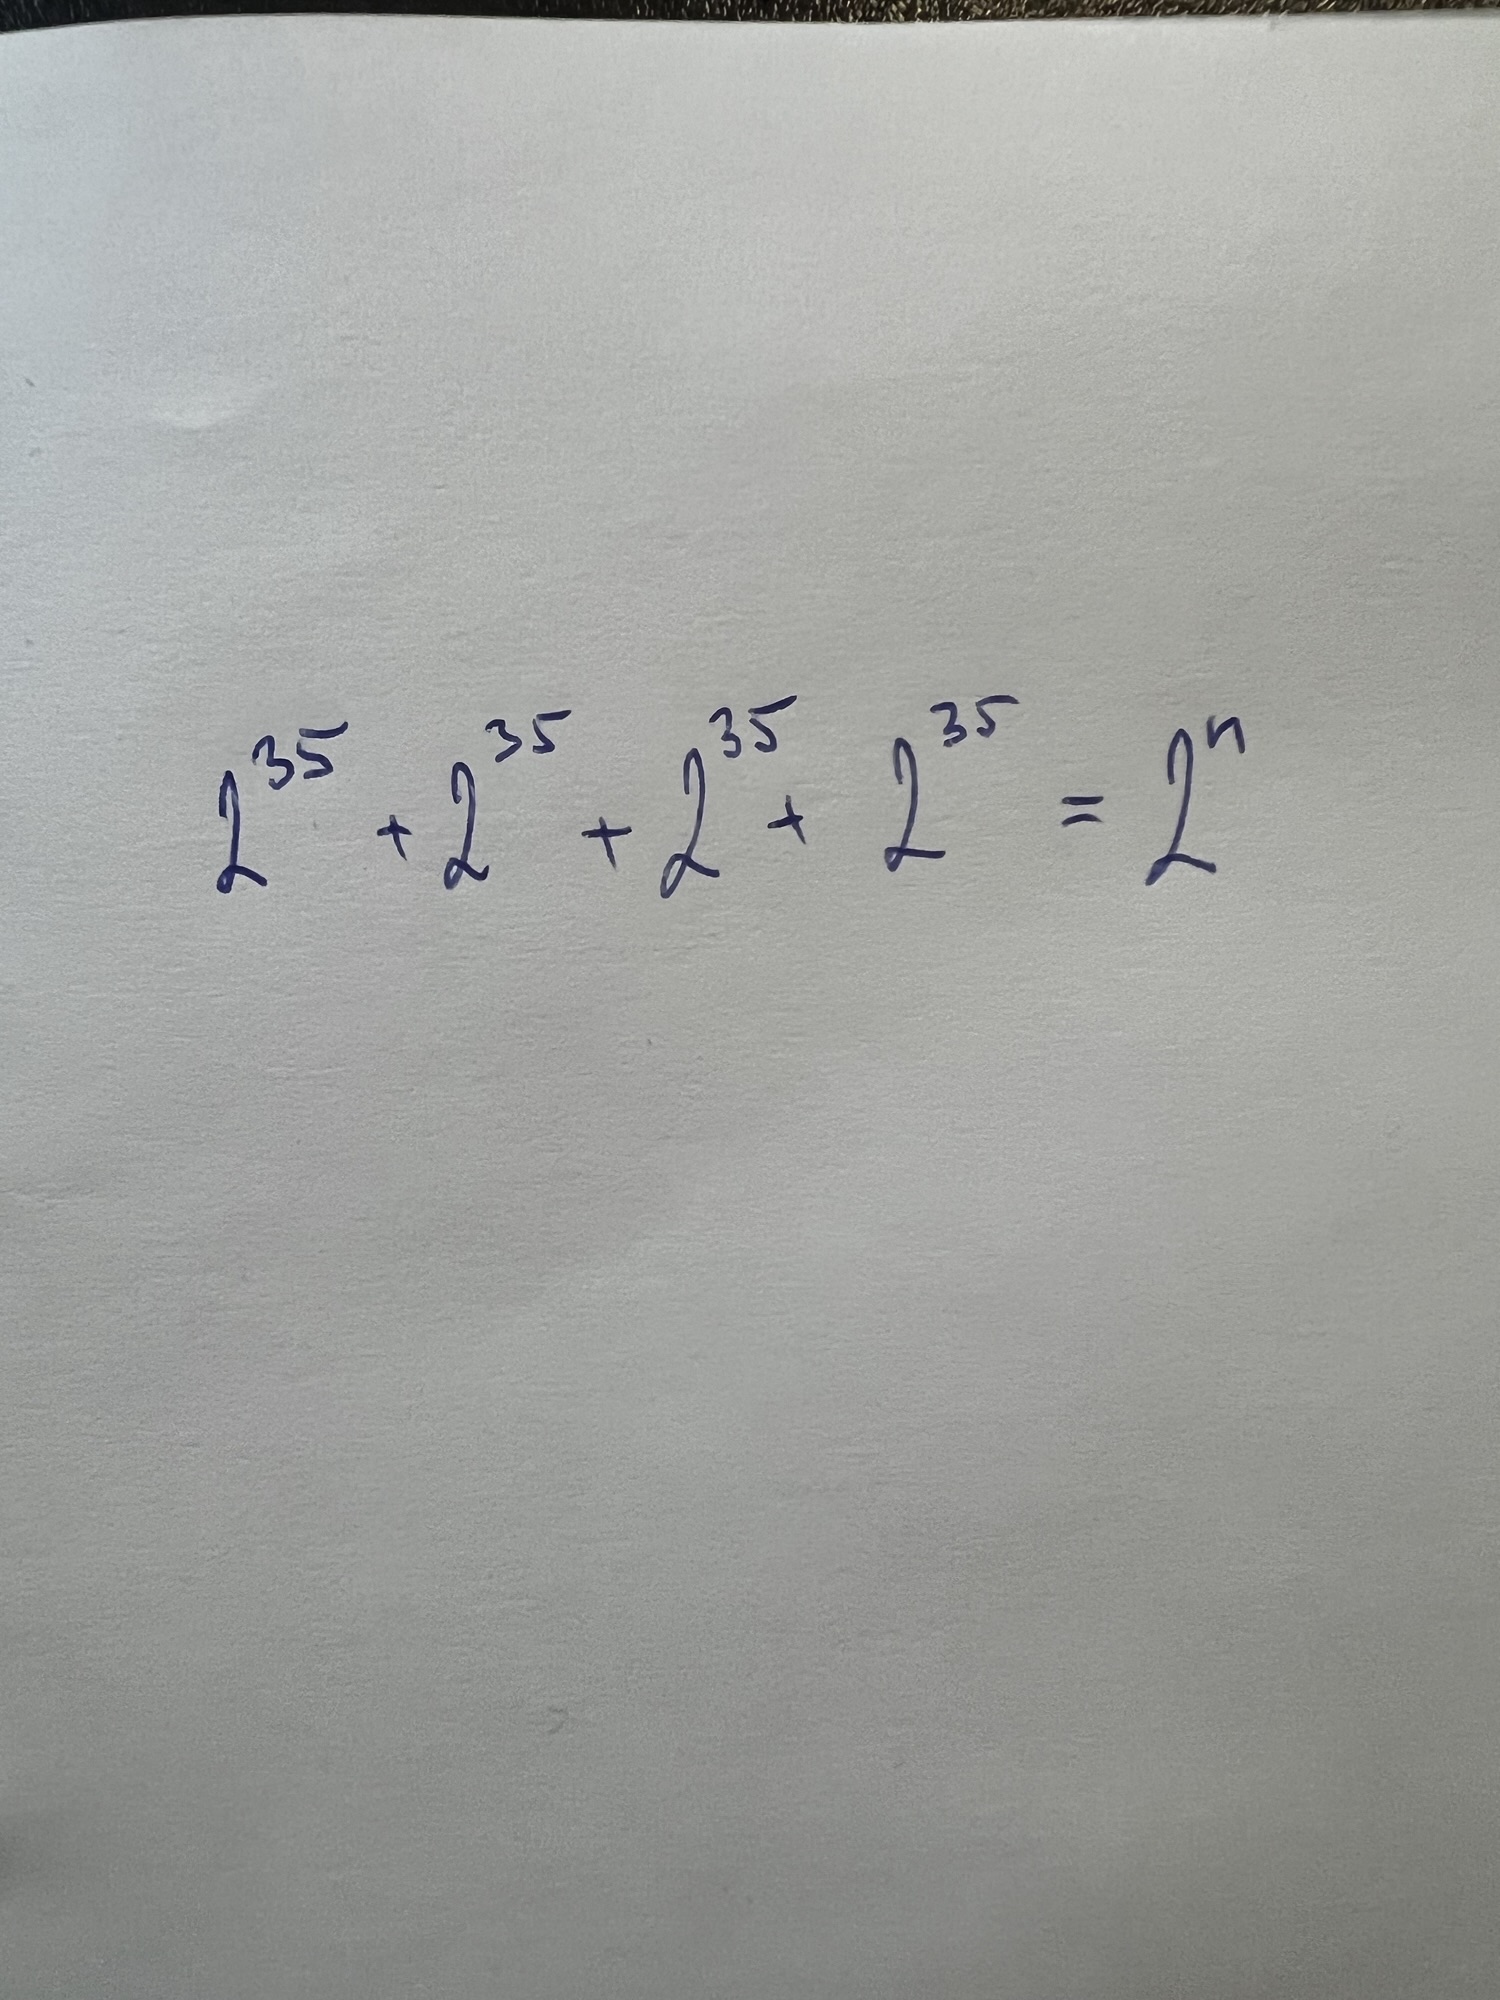 2³⁵ + 2³⁵ + 2³⁵ + 2³⁵ = 2ⁿ